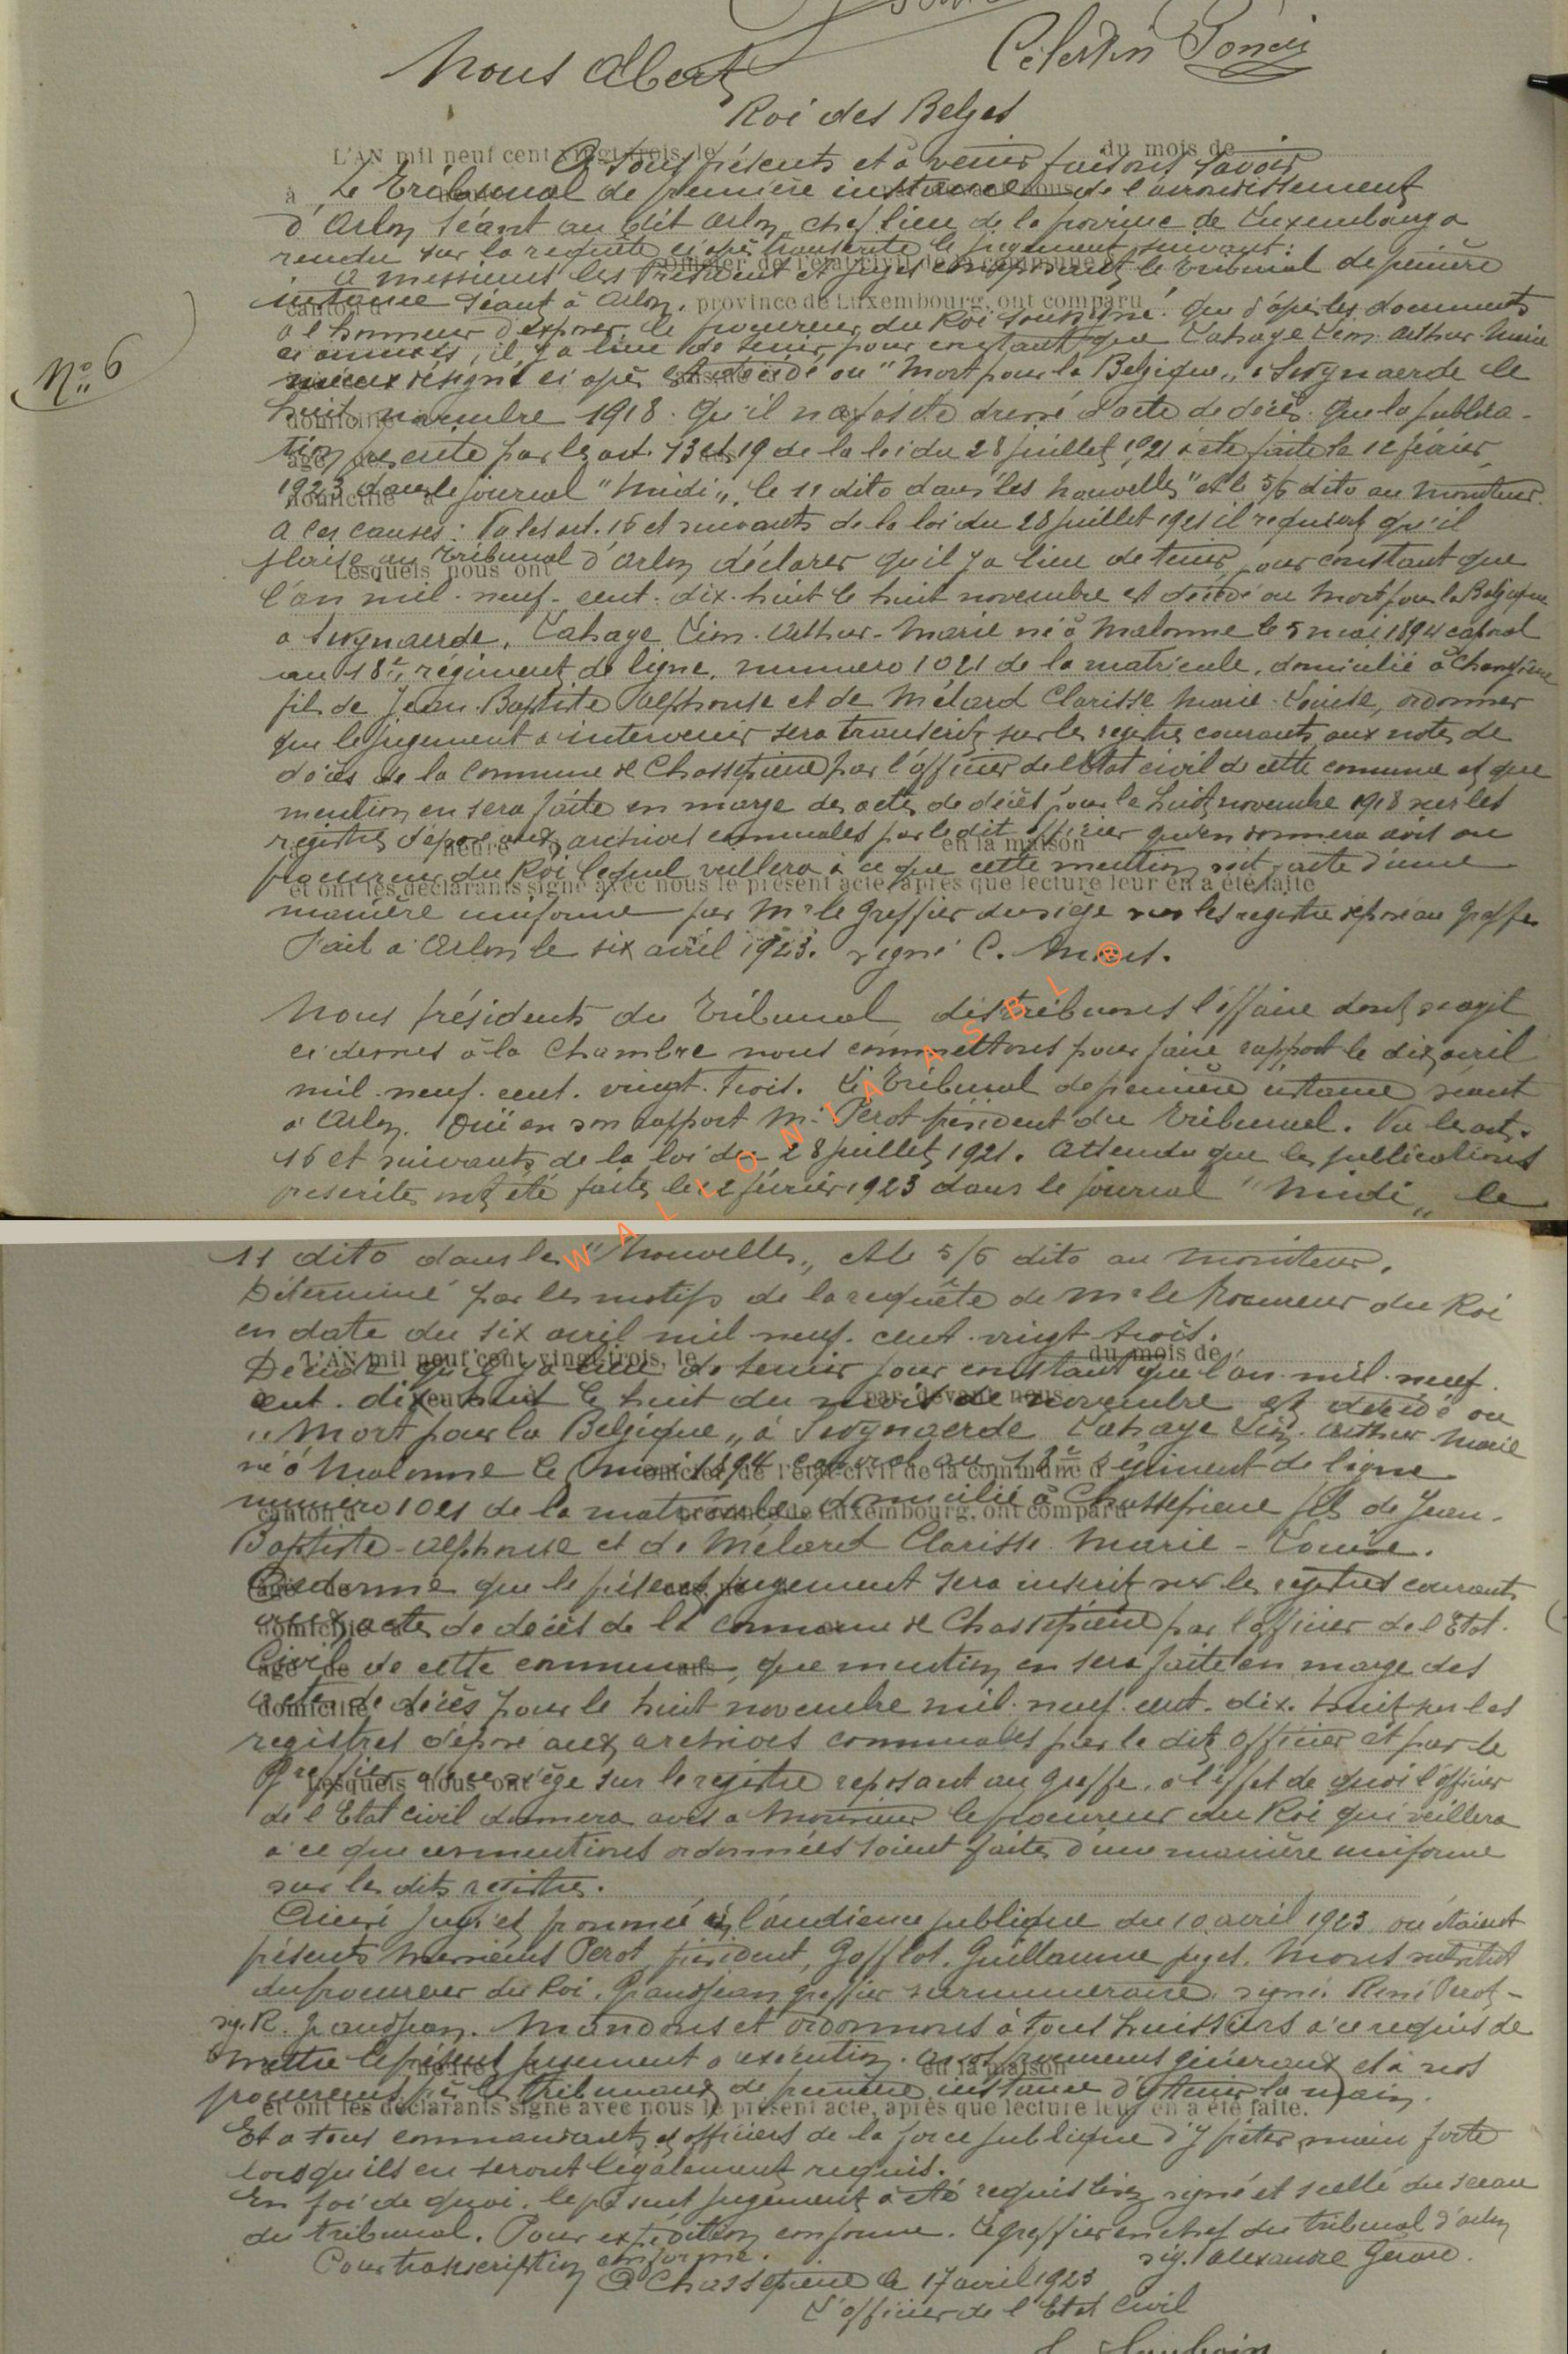 Célestin
Nous Albert
Roi des Belges
L'AN mil neuf cent vingt-trois, le du mois de
A tous présents et à venir faisons savoir
Le Tribunal de première instance de l'arrondissement
d'Arlon séant au dit Arlon, chef lieu de la province de Luxembourg a
rendu sur la requête ci après transcrite le jugement suivant:
officier de l'état civil de la commune d
A messieurs les Président et Juges composant le Tribunal de première
instance séant à Arlon.
canton d province de Luxembourg, ont comparu
a l'honneur d'exposer le procureur du Roi soussigné: que d'après les documents
ci annexés, il y a lieu de tenir pour constant que Lahaye Léon Arthur Marie
N° 6
mieux désigné ci après est décédé ou "Mort pour la Belgique" à Swynaerde le
huit novembre 1918. Qu'il n'a pas été dressé d'acte de décès. Que la publica-
tion prescrite par les art. 13 et 19 de la loi du 28 juillet 1921 a été faite le 12 février
1923 dans le journal "Midi", le 11 dito dans "les Nouvelles" et le 5/6 dito au Moniteur.
A ces causes: Vu les art. 16 et suivants de la loi du 28 juillet 1921 il requiert qu'il
plaise au Tribunal d'Arlon déclarer qu'il y a lieu de tenir pour constant que
Lesquels nous ont
l'an mil-neuf-cent-dix-huit le huit novembre est décédé ou Mort pour la Belgique
à Swynaerde, Lahaye Léon-Arthur-Marie né à Malonne le 5 mai 1894 caporal
au 18e régiment de ligne, numéro 1021 de la matricule, domicilié à Chassepierre
fils de Jean-Baptiste Alphonse et de Mélard Clarisse Marie-Louise, ordonner
que le jugement à intervenir sera transcrit sur les registres courants aux notes de
décès de la Commune de Chassepierre par l'officier de l'Etat civil de cette commune et que
mention en sera faite en marge des actes de décès pour le huit novembre 1918 sur les
registres déposés aux archives communales par le dit officier qui en donnera avis au
heure en la maison
procureur du Roi lequel veillera à ce que cette mention soit faite d'une
et ont les déclarants signé avec nous le présent acte, après que lecture leur en a été faite
manière uniforme par Mr le Greffier du siège sur les registre déposé au Greffe
Fait à Arlon le six avril 1923. signé C.
Nous présidents du Tribunal, distribuons l'affaire dont s'agit
ci dessus à la Chambre nous commettons pour faire rapport le dix avril
mil-neuf-cent-vingt-trois. Le Tribunal de première instance séant
à Arlon. Ouï en son rapport Mr Perot président du Tribunal. Vu les art.
16 et suivants de la loi du 28 juillet 1921. Attendu que les publications
prescrites ont été faites le 12 février 1923 dans le journal "Midi" le
WALLONIA ASBL ®
11 dito dans les "Nouvelles" et le 5/6 dito au Moniteur.
Déterminé par les motifs de la requête de Mr le Procureur du Roi
en date du six avril mil-neuf-cent-vingt-trois.
L'AN mil neuf cent vingt-trois, le du mois de
Décide qu'il y a lieu de tenir pour constant que l'an mil-neuf-
par devant nous
cent-dix-huit le huit du mois de novembre est décédé ou
"Mort pour la Belgique" à Swynaerde Lahaye Léon-Arthur Marie
né à Malonne le 5 mai 1894 caporal au 18e régiment de ligne
officier de l'état civil de la commune d
numéro 1021 de la matricule, domicilié à Chassepierre fils de Jean-
canton d province de Luxembourg, ont comparu
Baptiste-Alphonse et de Mélard Clarisse Marie-Louise.
Ordonne que le présent jugement sera inscrit sur les registres courants
aux actes de décès de la commune de Chassepierre par l'officier de l'Etat-
domicilié
Civil de cette commune, que mention en sera faite en marge des
âgé de ans
actes de décès pour le huit novembre mil-neuf-cent-dix-huit sur les
domicilié
registres déposé aux archives communales par le dit officier et par le
Greffier de ce siège sur le registre reposant au greffe, à l'effet de quoi l'officier
Lesquels nous ont
de l'Etat Civil donnera avis à Monsieur le procureur du Roi qui veillera
à ce que ces mentions ordonnées soient faites d'une manière uniforme
sur les dits registres.
Ainsi jugé et prononcé à l'audience publique du 10 avril 1923 où étaient
présents Messieurs Perot, président, Gofflot, Guillaume juges. Mons substitut
du procureur du Roi. Grandjean greffier surnuméraire. signé. René Perot-
sig. R. Grandjean. Mandons et ordonnons à tous huissiers à ce requis de
mettre le présent jugement à exécution. A nos procureurs généraux et à nos
heure en la maison
procureurs près les Tribunaux de première instance d'y tenir la main.
et ont les déclarants signé avec nous le présent acte, après que lecture leur en a été faite.
Et à tous commandants et officiers de la force publique d'y prêter main forte
lorsqu'ils en seront légalement requis.
En foi de quoi, le présent jugement a été signé et scellé du sceau
du tribunal. Pour expédition conforme. Le greffier en chef du tribunal d'Arlon
Pour transcription conforme. sig. Alexandre Gérard.
A Chassepierre le 17 avril 1923
L'officier de l'Etat Civil